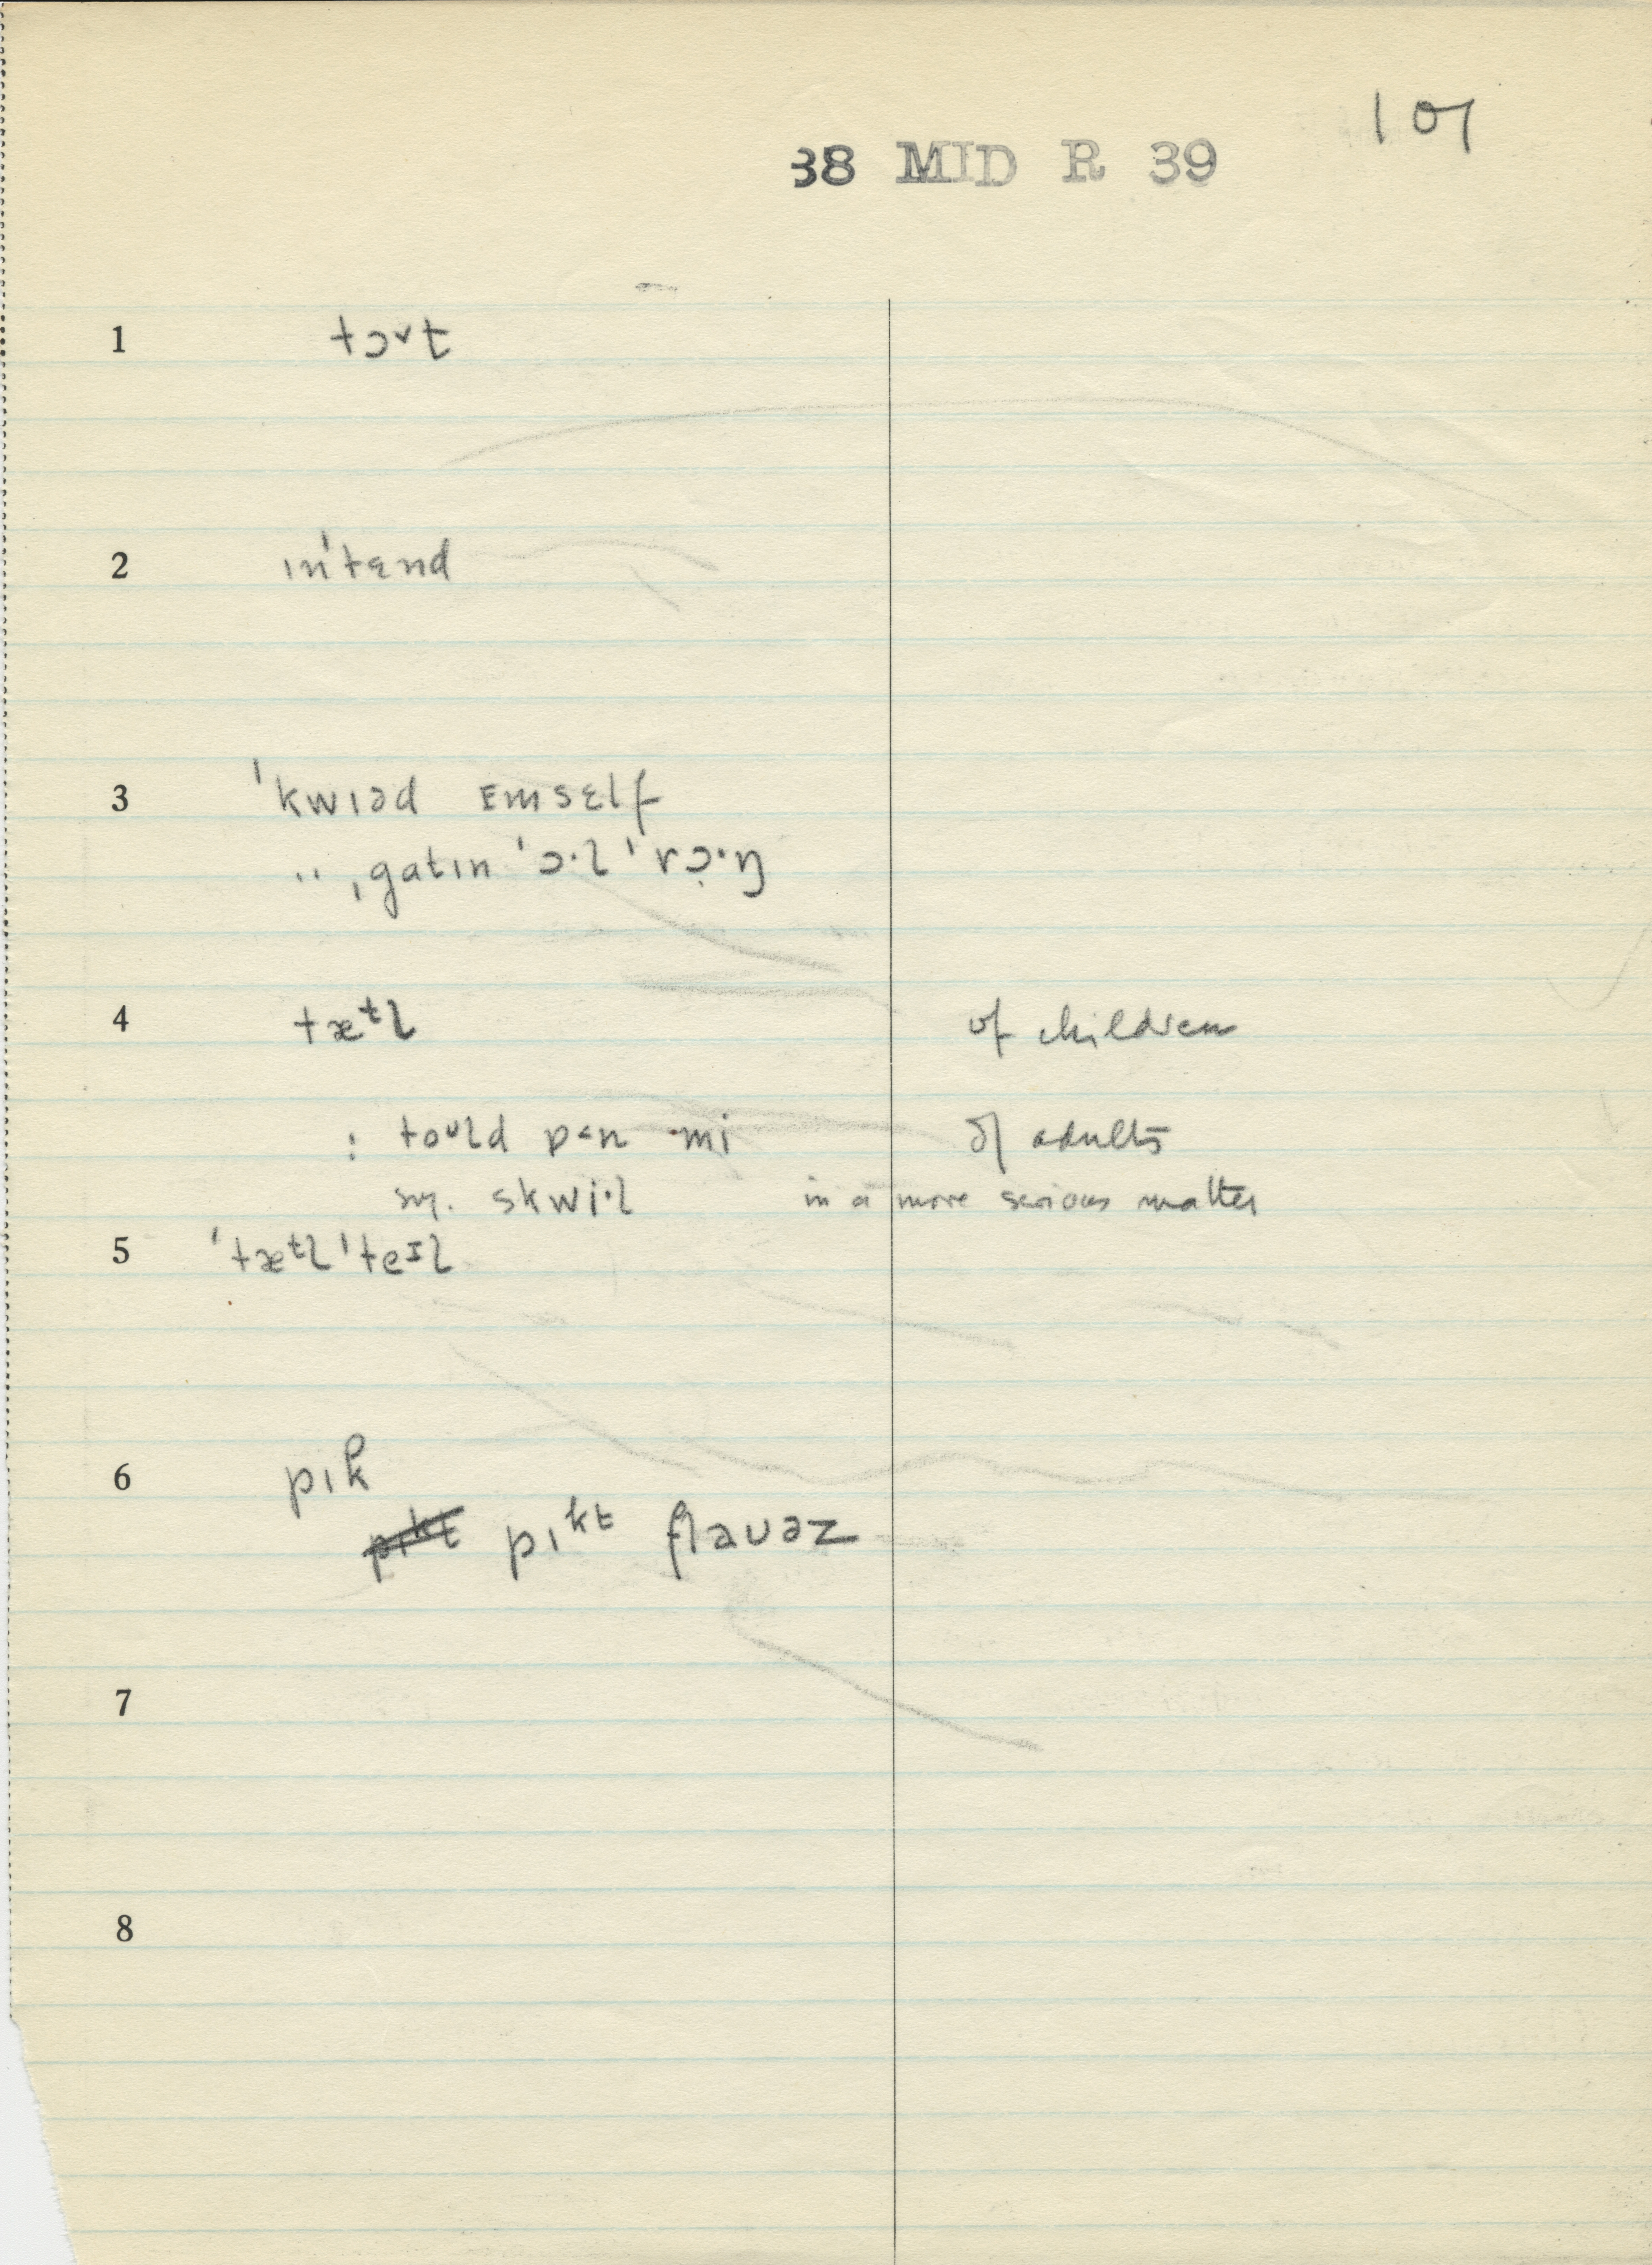 101
38 MID R 39
1 tɔ˅t
2 ɪn'tɛnd
3 'kwɪəd ᴇmsɛlf
" ˌgatɪn 'ɔ·l 'rɔ̣·ŋ
4 tæᵗl of children
: toᵘld ɒ˂n mi of adults
sy. skwi·l in a more serious matter
5 'tæᵗl 'teᶦl
6 pɪk
pɪᵏᵗ flauəz
7
8